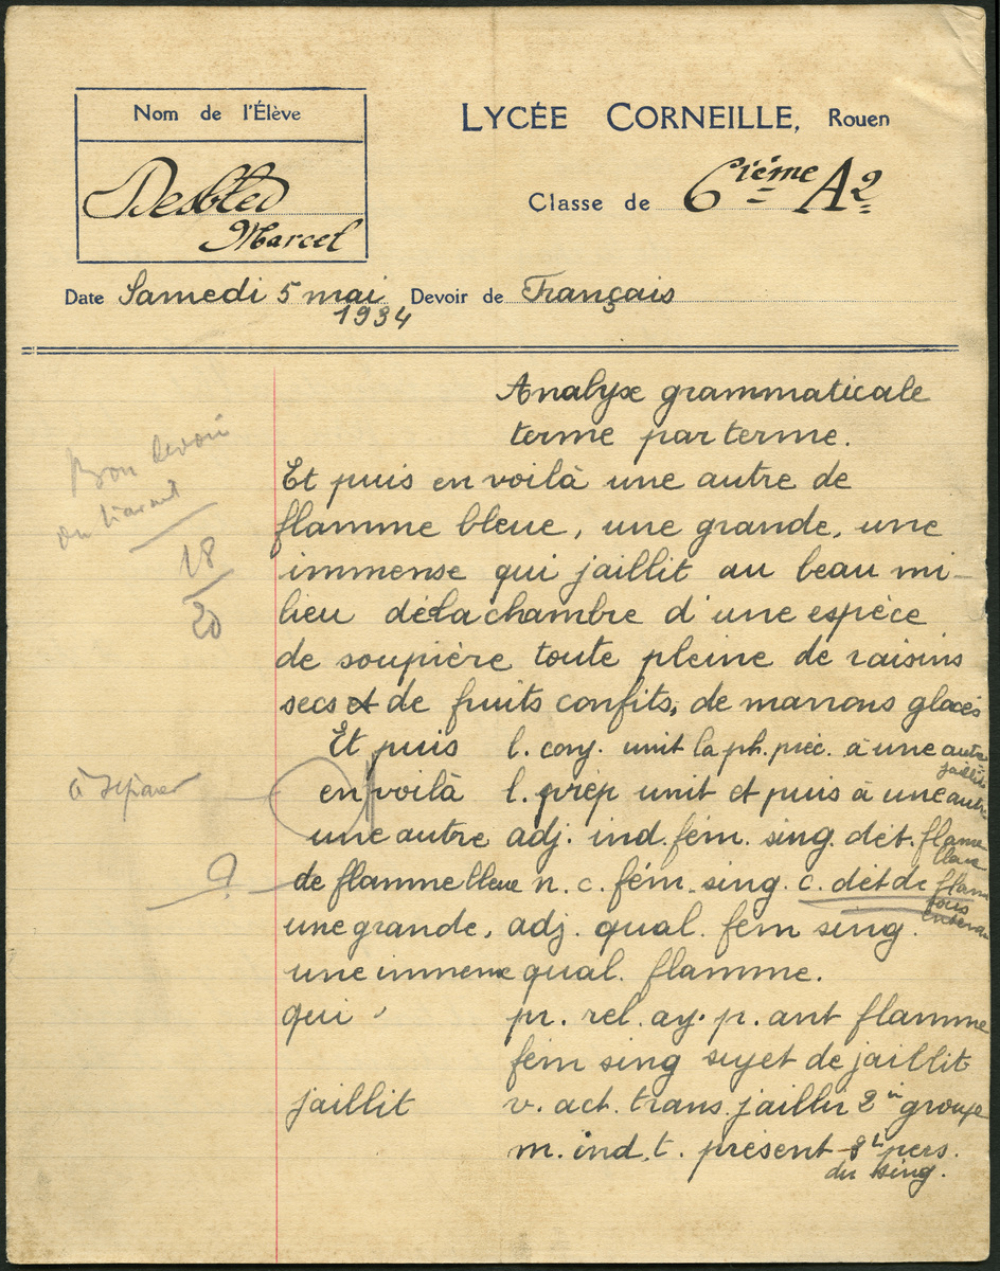 Nom de l'Élève
Desbled
Marcel
LYCÉE CORNEILLE, Rouen
Classe de 6ième A2
Date Samedi 5 mai
1934
Devoir de Français
Analyse grammaticale
terme par terme.
Bon devoir
18
20
Et puis en voilà une autre de
flamme bleue, une grande, une
immense qui jaillit au beau mi-
lieu de la chambre d'une espèce
de soupière toute pleine de raisins
secs et de fruits confits, de marrons glacés
Et puis l. conj. unit la ph. préc. à une autre
jaillit
à séparer
en voilà l. prép unit et puis à une autre
une autre adj. ind. fém. sing. dét. flamme
bleue
?
de flamme bleue n. c. fém. sing. c. dét de flam
une grande, adj. qual. fém sing.
une immense qual. flamme.
qui pr. rel. ay. p. ant flamme
fém sing sujet de jaillit
jaillit v. act. trans. jaillir 2e groupe
m. ind. t. présent 3e pers.
du sing.